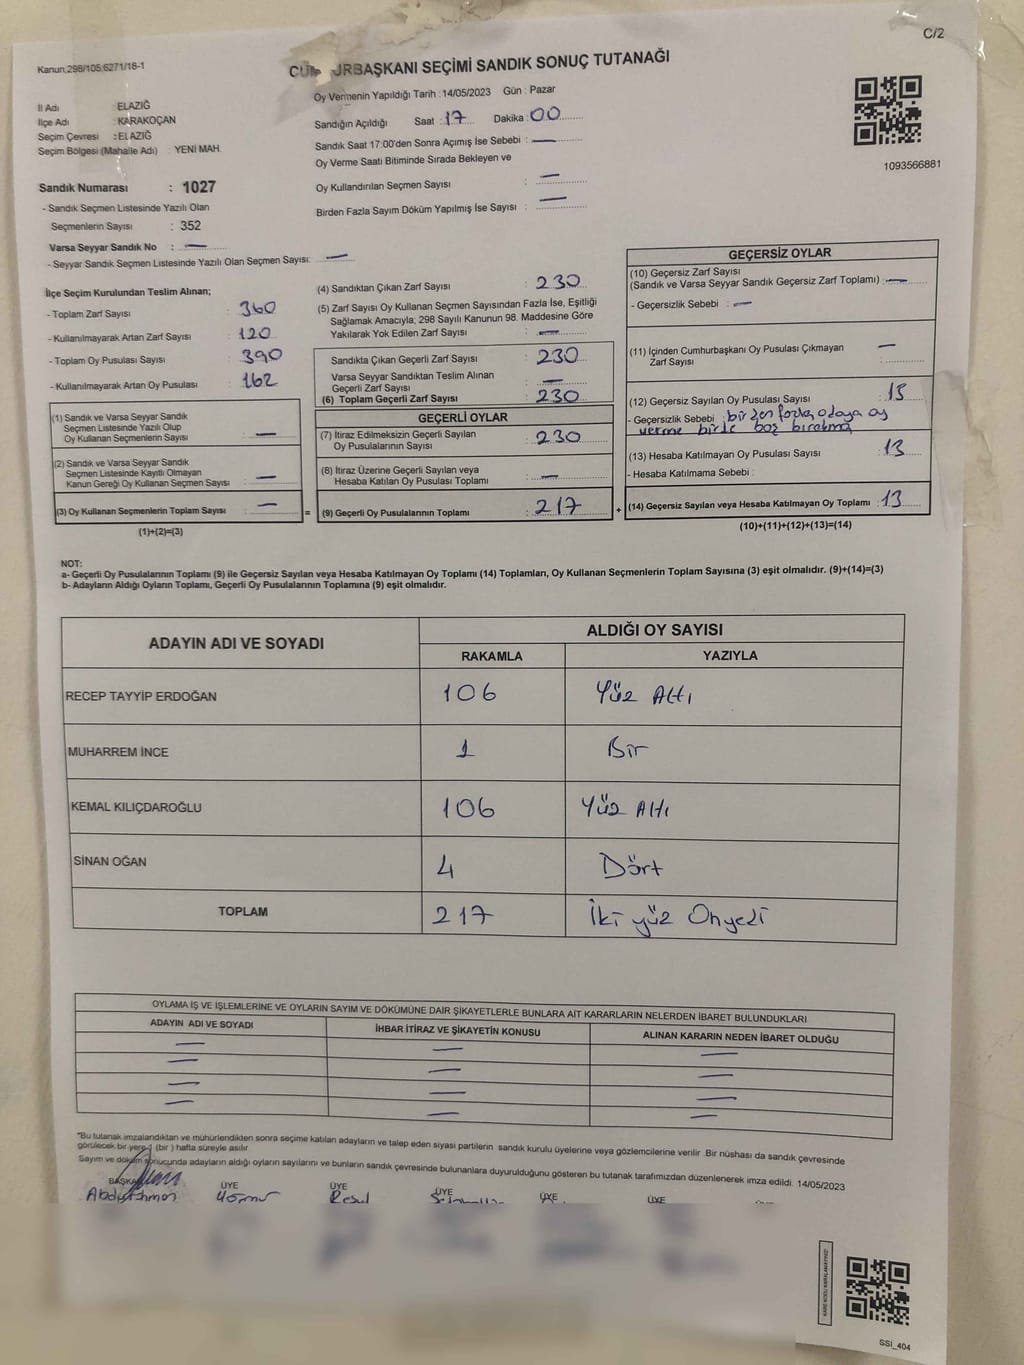 C/2
Kanun,298/105;6271/18-1
URBAŞKANI SEÇİMİ SANDIK SONUÇ TUTANAĞI
Oy Vermenin Yapıldığı Tarih :14/05/2023 Gün : Pazar
İl Adı : ELAZIĞ
İlçe Adı : KARAKOÇAN
Seçim Çevresi : ELAZIĞ
Seçim Bölgesi (Mahalle Adı) : YENİ MAH.
Sandığın Açıldığı Saat : 17 Dakika : 00
Sandık Saat 17:00'den Sonra Açımış İse Sebebi : —
Oy Verme Saati Bitiminde Sırada Bekleyen ve
Oy Kullandırılan Seçmen Sayısı : —
Birden Fazla Sayım Döküm Yapılmış İse Sayısı : —
1093566881
Sandık Numarası : 1027
- Sandık Seçmen Listesinde Yazılı Olan
Seçmenlerin Sayısı : 352
Varsa Seyyar Sandık No : —
- Seyyar Sandık Seçmen Listesinde Yazılı Olan Seçmen Sayısı: —
İlçe Seçim Kurulundan Teslim Alınan;
- Toplam Zarf Sayısı : 360
- Kullanılmayarak Artan Zarf Sayısı : 120
- Toplam Oy Pusulası Sayısı : 390
- Kullanılmayarak Artan Oy Pusulası : 162
(1) Sandık ve Varsa Seyyar Sandık
Seçmen Listesinde Yazılı Olup
Oy Kullanan Seçmenlerin Sayısı : —
(2) Sandık ve Varsa Seyyar Sandık
Seçmen Listesinde Kayıtlı Olmayan
Kanun Gereği Oy Kullanan Seçmen Sayısı : —
(3) Oy Kullanan Seçmenlerin Toplam Sayısı : —
(1)+(2)=(3)
(4) Sandıktan Çıkan Zarf Sayısı : 230
(5) Zarf Sayısı Oy Kullanan Seçmen Sayısından Fazla İse, Eşitliği
Sağlamak Amacıyla; 298 Sayılı Kanunun 98. Maddesine Göre
Yakılarak Yok Edilen Zarf Sayısı : —
Sandıkta Çıkan Geçerli Zarf Sayısı : 230
Varsa Seyyar Sandıktan Teslim Alınan
Geçerli Zarf Sayısı : —
(6) Toplam Geçerli Zarf Sayısı : 230
GEÇERLİ OYLAR
(7) İtiraz Edilmeksizin Geçerli Sayılan
Oy Pusulalarının Sayısı : 230
(8) İtiraz Üzerine Geçerli Sayılan veya
Hesaba Katılan Oy Pusulası Toplamı : —
= (9) Geçerli Oy Pusulalarının Toplamı : 217
GEÇERSİZ OYLAR
(10) Geçersiz Zarf Sayısı
(Sandık ve Varsa Seyyar Sandık Geçersiz Zarf Toplamı) : —
- Geçersizlik Sebebi : —
(11) İçinden Cumhurbaşkanı Oy Pusulası Çıkmayan
Zarf Sayısı : —
(12) Geçersiz Sayılan Oy Pusulası Sayısı : 13
- Geçersizlik Sebebi : birden fazla adaya oy
verme birle boş bırakma
(13) Hesaba Katılmayan Oy Pusulası Sayısı : 13
- Hesaba Katılmama Sebebi :
+ (14) Geçersiz Sayılan veya Hesaba Katılmayan Oy Toplamı : 13
(10)+(11)+(12)+(13)=(14)
NOT:
a- Geçerli Oy Pusulalarının Toplamı (9) ile Geçersiz Sayılan veya Hesaba Katılmayan Oy Toplamı (14) Toplamları, Oy Kullanan Seçmenlerin Toplam Sayısına (3) eşit olmalıdır. (9)+(14)=(3)
b- Adayların Aldığı Oyların Toplamı, Geçerli Oy Pusulalarının Toplamına (9) eşit olmalıdır.
ADAYIN ADI VE SOYADI ALDIĞI OY SAYISI
RAKAMLA YAZIYLA
RECEP TAYYİP ERDOĞAN 106 Yüz Altı
MUHARREM İNCE 1 Bir
KEMAL KILIÇDAROĞLU 106 Yüz Altı
SİNAN OĞAN 4 Dört
TOPLAM 217 İki yüz Onyedi
OYLAMA İŞ VE İŞLEMLERİNE VE OYLARIN SAYIM VE DÖKÜMÜNE DAİR ŞİKAYETLERLE BUNLARA AİT KARARLARIN NELERDEN İBARET BULUNDUKLARI
ADAYIN ADI VE SOYADI İHBAR İTİRAZ VE ŞİKAYETİN KONUSU ALINAN KARARIN NEDEN İBARET OLDUĞU
— — —
— — —
— — —
— — —
*Bu tutanak imzalandıktan ve mühürlendikten sonra seçime katılan adayların ve talep eden siyasi partilerin sandık kurulu üyelerine veya gözlemcilerine verilir .Bir nüshası da sandık çevresinde
görülecek bir yere 1 (bir ) hafta süreyle asılır
Sayım ve döküm sonucunda adayların aldığı oyların sayılarını ve bunların sandık çevresinde bulunanlara duyurulduğunu gösteren bu tutanak tarafımızdan düzenlenerek imza edildi. 14/05/2023
BAŞKAN ÜYE ÜYE ÜYE ÜYE ÜYE
Abdurrahman Resul
SSI_404